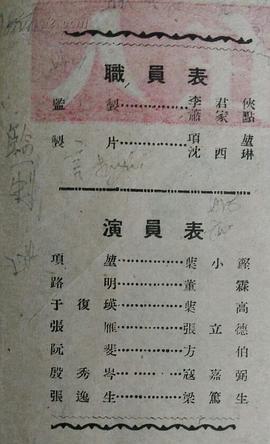 職員表
監製……………李君俠
蕭家點
製片……………項堃
沈西琳
演員表
項堃……………葉小鏗
路明……………董霖
于復瑛…………葉高
張雁……………張立德
阮斐……………方伯
殷秀岑…………寇嘉弼
張逸生…………梁篤生